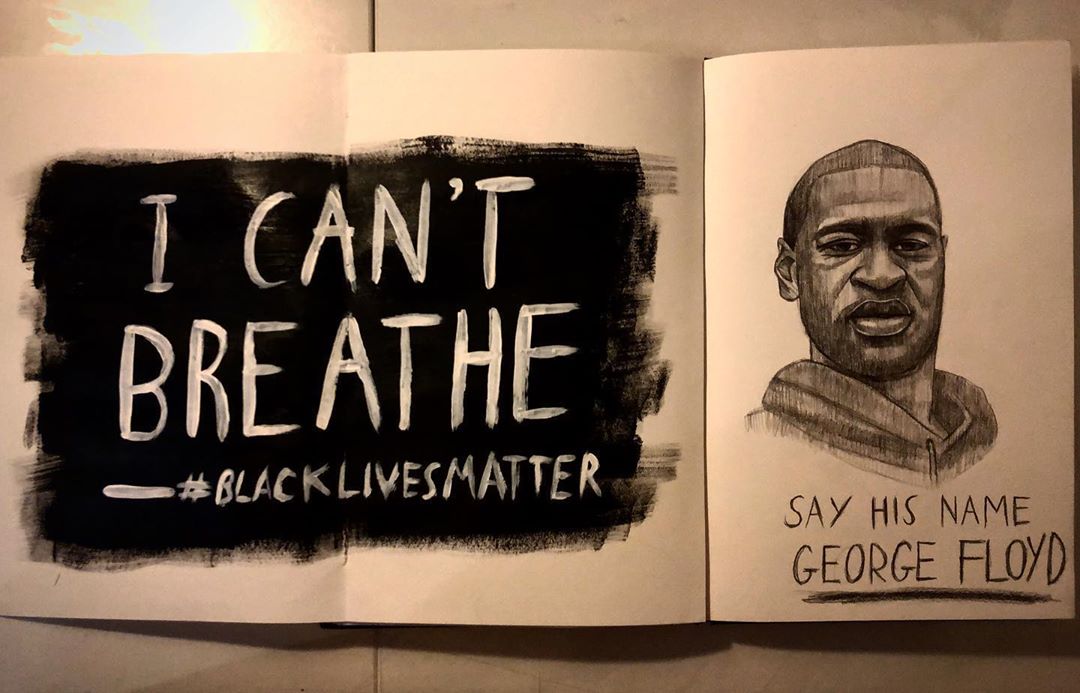 I CAN'T
BREATHE
—#BLACKLIVESMATTER
SAY HIS NAME
GEORGE FLOYD